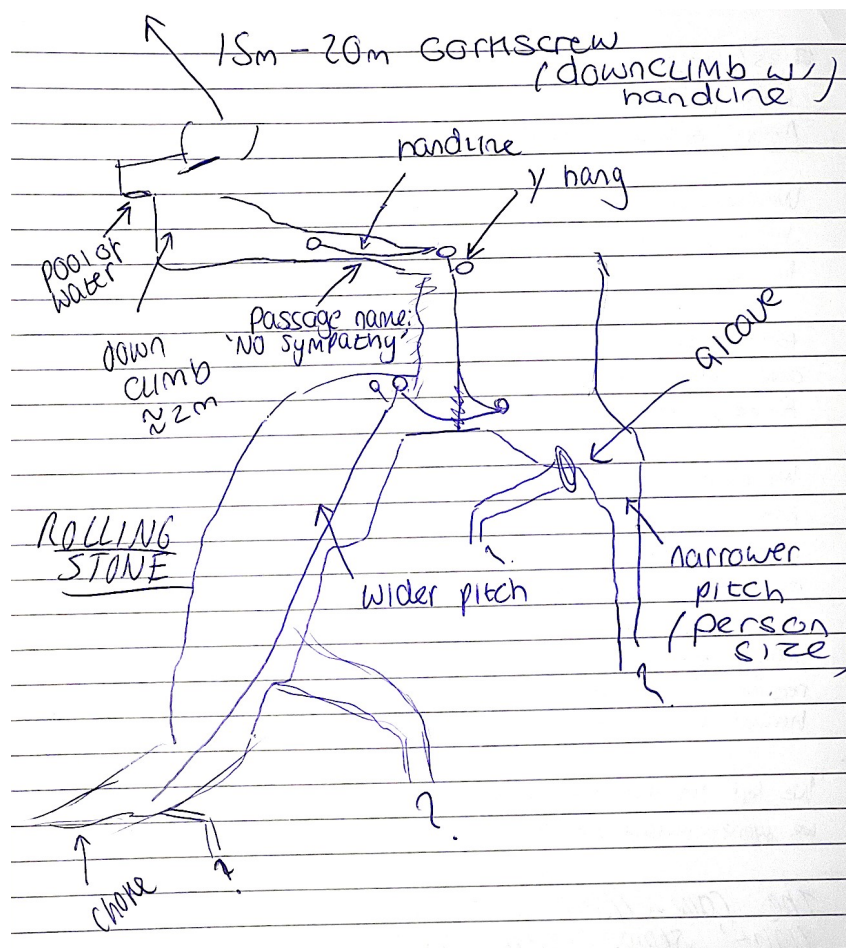 15m - 20m corkscrew
(downclimb w/
handline)
handline
Y hang
pool of
water
down
climb
≈2m
passage name:
'NO sympathy'
alcove
ROLLING
STONE
wider pitch
narrower
pitch
(person
size
?
?
?
?
choke